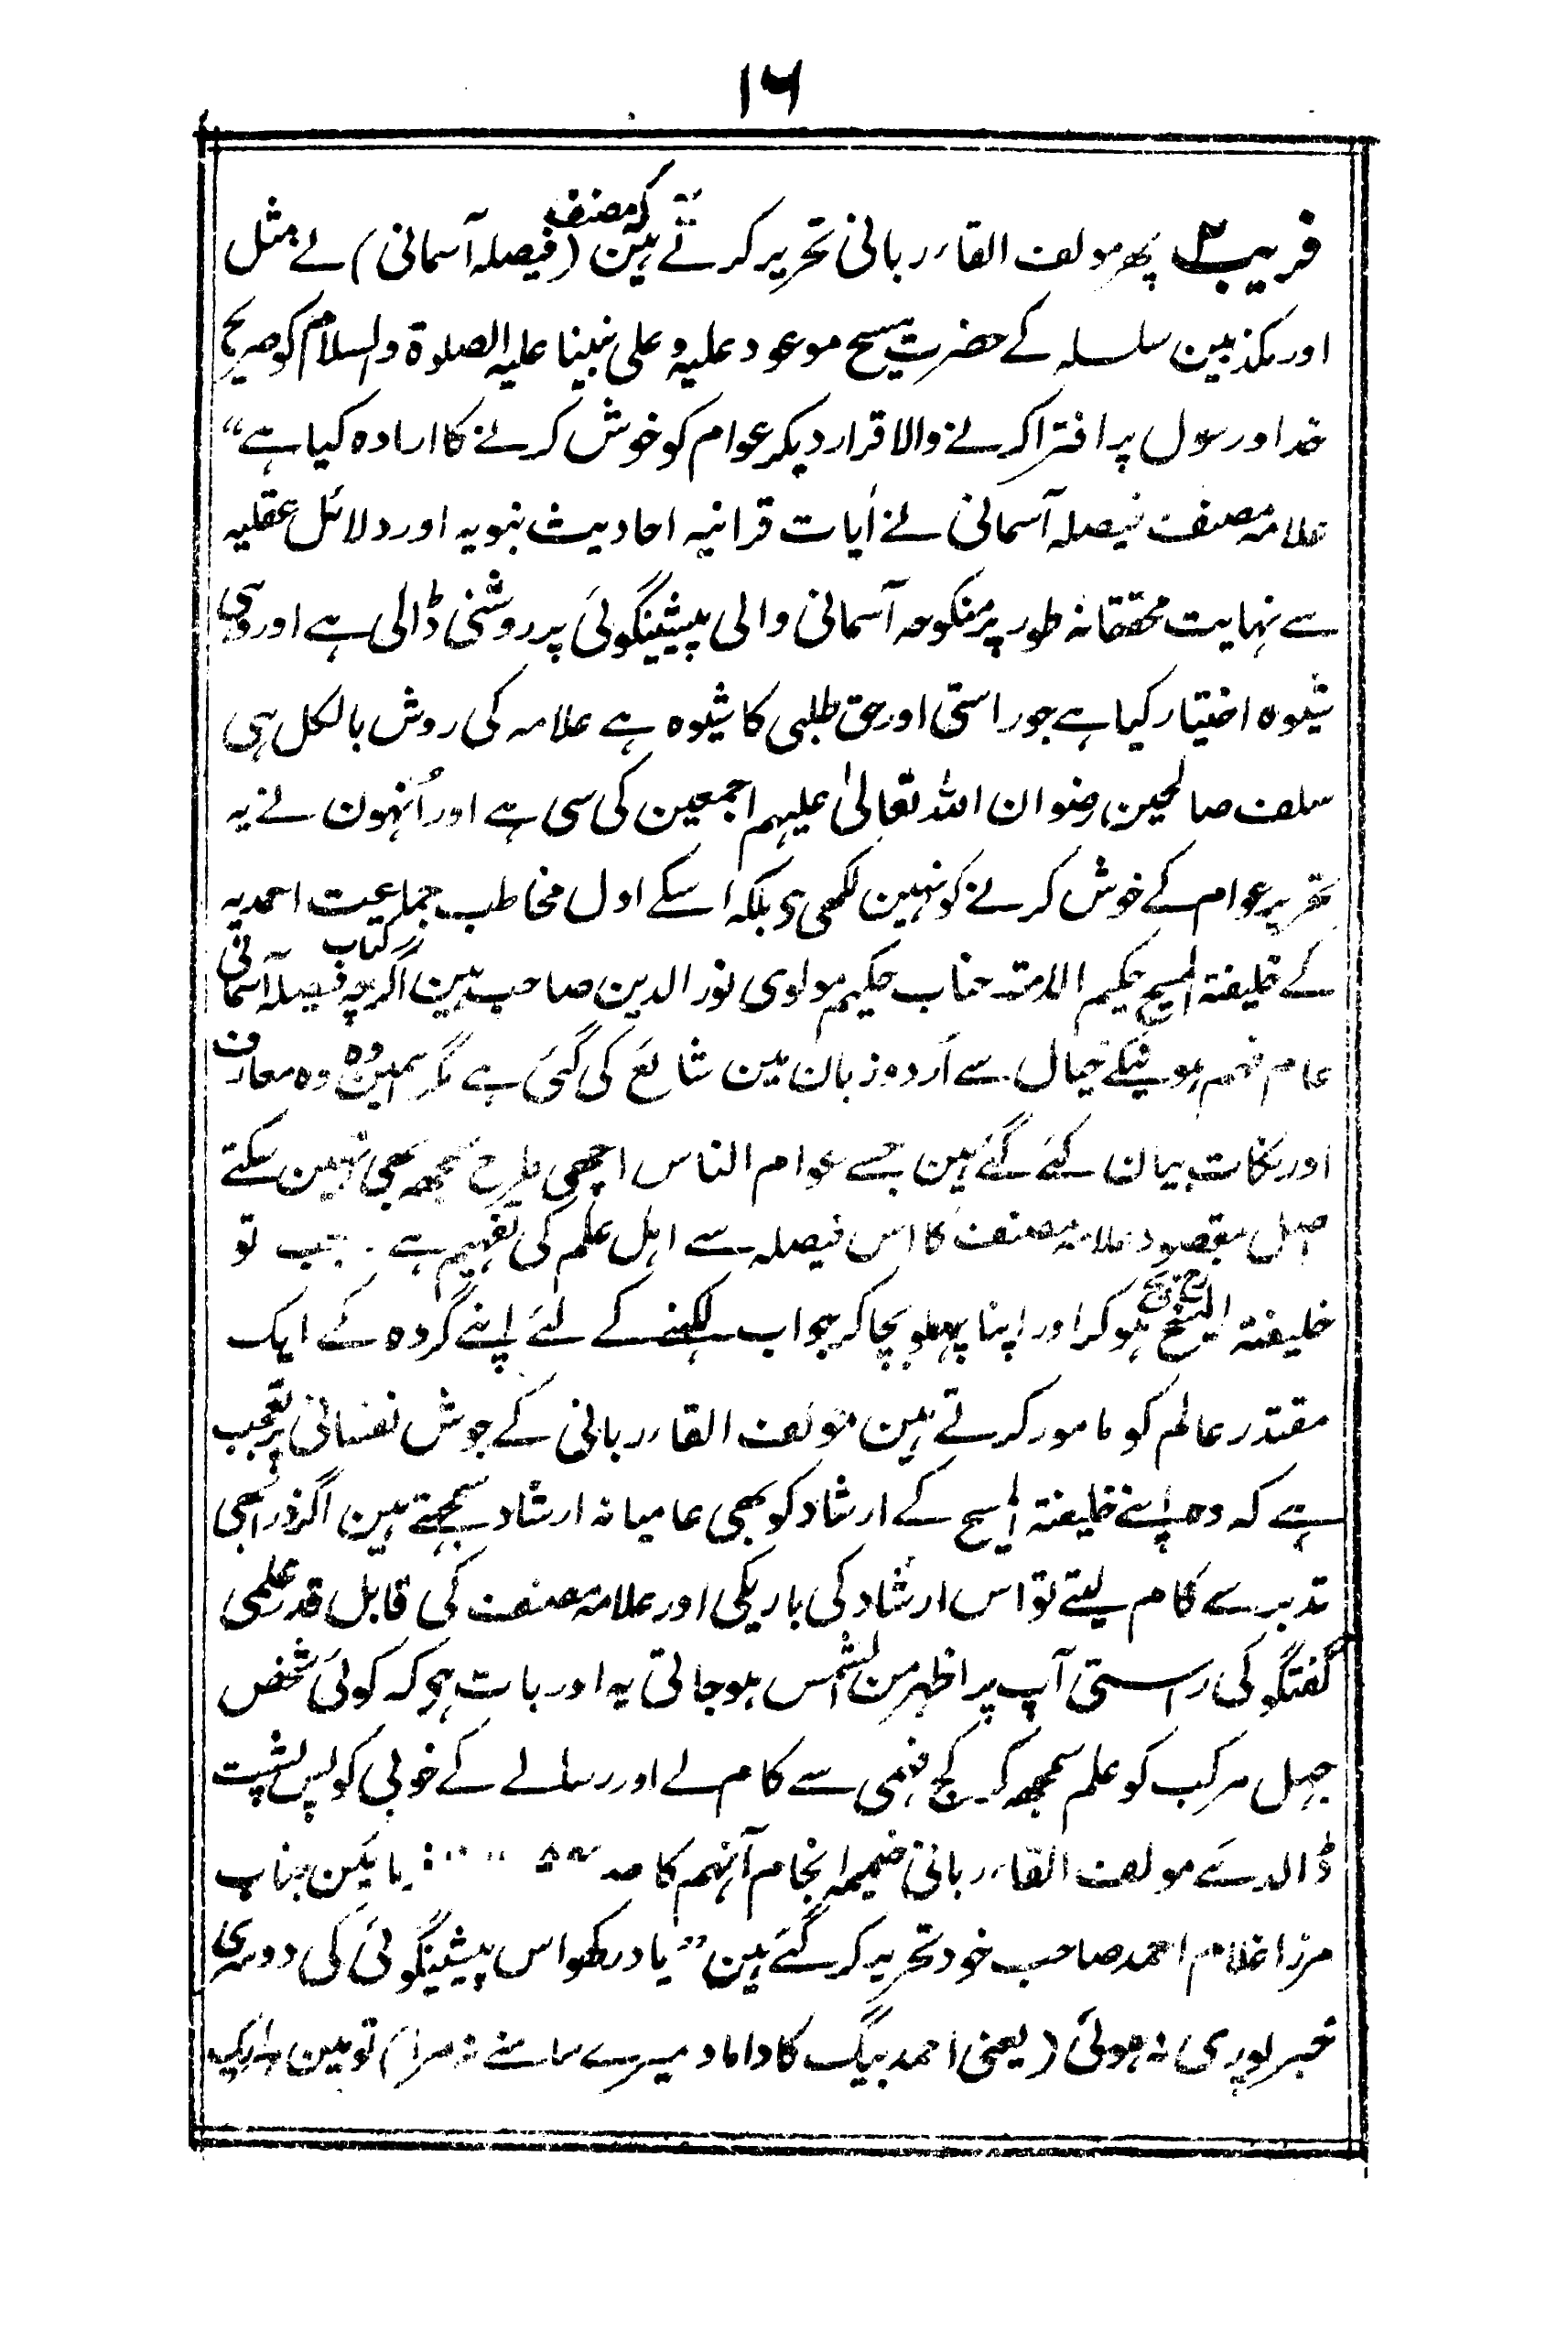 ۱۶
فریب۲ پھر مولف القاء ربانی تحریر کرتے ہین ”کہ مصنف (فیصلہ آسمانی) نے مثل
اور مکذبین سلسلہ کے حضرت مسیح موعود علیہ وعلی نبینا علیہ الصلوۃ والسلام کو صریح
خدا ورسول پر افترا کرنے والا قرار دیکر عوام کو خوش کرنے کا ارادہ کیا ہے“
علامہ مصنف فیصلہ آسمانی نے آیات قرانیہ احادیث نبویہ اور دلائل عقلیہ
سے نہایت محققانہ طور پر منکوحہ آسمانی والی پیشینگوئی پر روشنی ڈالی ہے اور وہی
شیوہ اختیار کیا ہے جو راستی اور حق طلبی کا شیوہ ہے علامہ کی روش بالکل ہی
سلف صالحین رضوان اللہ تعالیٰ علیہم اجمعین کی سی ہے اور اُنہون نے یہ
تحریر عوام کے خوش کرنے کو نہین لکھی بلکہ اسکے اول مخاطب جماعت احمدیہ
کے خلیفۃ المسیح حکیم الامۃ جناب حکیم مولوی نور الدین صاحب ہین اگرچہ کتاب فیصلہ آسمانی
عام فہم ہونیکے خیال سے اُردو زبان مین شایع کی گئی ہے مگر اسمین وہ وہ معارف
اور نکات بیان کئے گئے ہین جسے عوام الناس اچھی طرح سمجھ بھی نہین سکتے
اصل مقصود علامہ مصنف کا اس فیصلہ سے اہل علم کی تفہیم ہے۔ جب تو
خلیفۃ المسیح ہوکر اور اپنا پہلو بچاکر جواب لکھنے کے لئے اپنے گروہ کے ایک
مقتدر عالم کو مامور کرتے ہین مؤلف القاء ربانی کے جوش نفسانی پر تعجب
ہے کہ وہ اپنے خلیفۃ المسیح کے ارشاد کو بھی عامیانہ ارشاد سمجھتے ہین اگر ذرا بھی
تدبر سے کام لیتے تو اس ارشاد کی باریکی اور علامہ مصنف کی قابل قدر علمی
گفتگو کی راستی آپ پر اظہر من الشمس ہوجاتی یہ اور بات ہے کہ کوئی شخص
جہل مرکب کو علم سمجھ کر کج فہمی سے کام لے اور رسالے کے خوبی کو پس پشت
ڈالدے مولف القاء ربانی ضمیمہ انجام آتہم کا صہ یائین جناب
مرزا غلام احمد صاحب خود تحریر کرگئے ہین ”یاد رکھو اس پیشینگوئی کی دوسری
خبر پوری نہ ہوئی (یعنی احمد بیگ کا داماد میرے سامنے نہ مرا) تو مین ہرایک